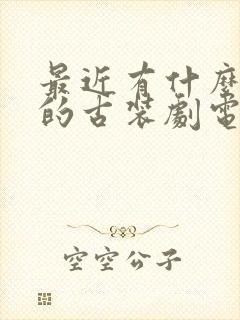 最近有什麼
的古裝劇電
空空公子